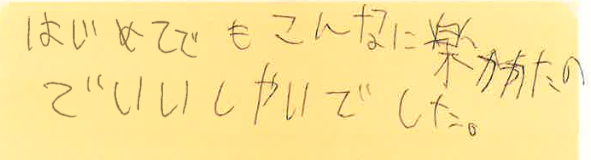 はじめてでもこんなに楽しかったの
でいいしやいでした。